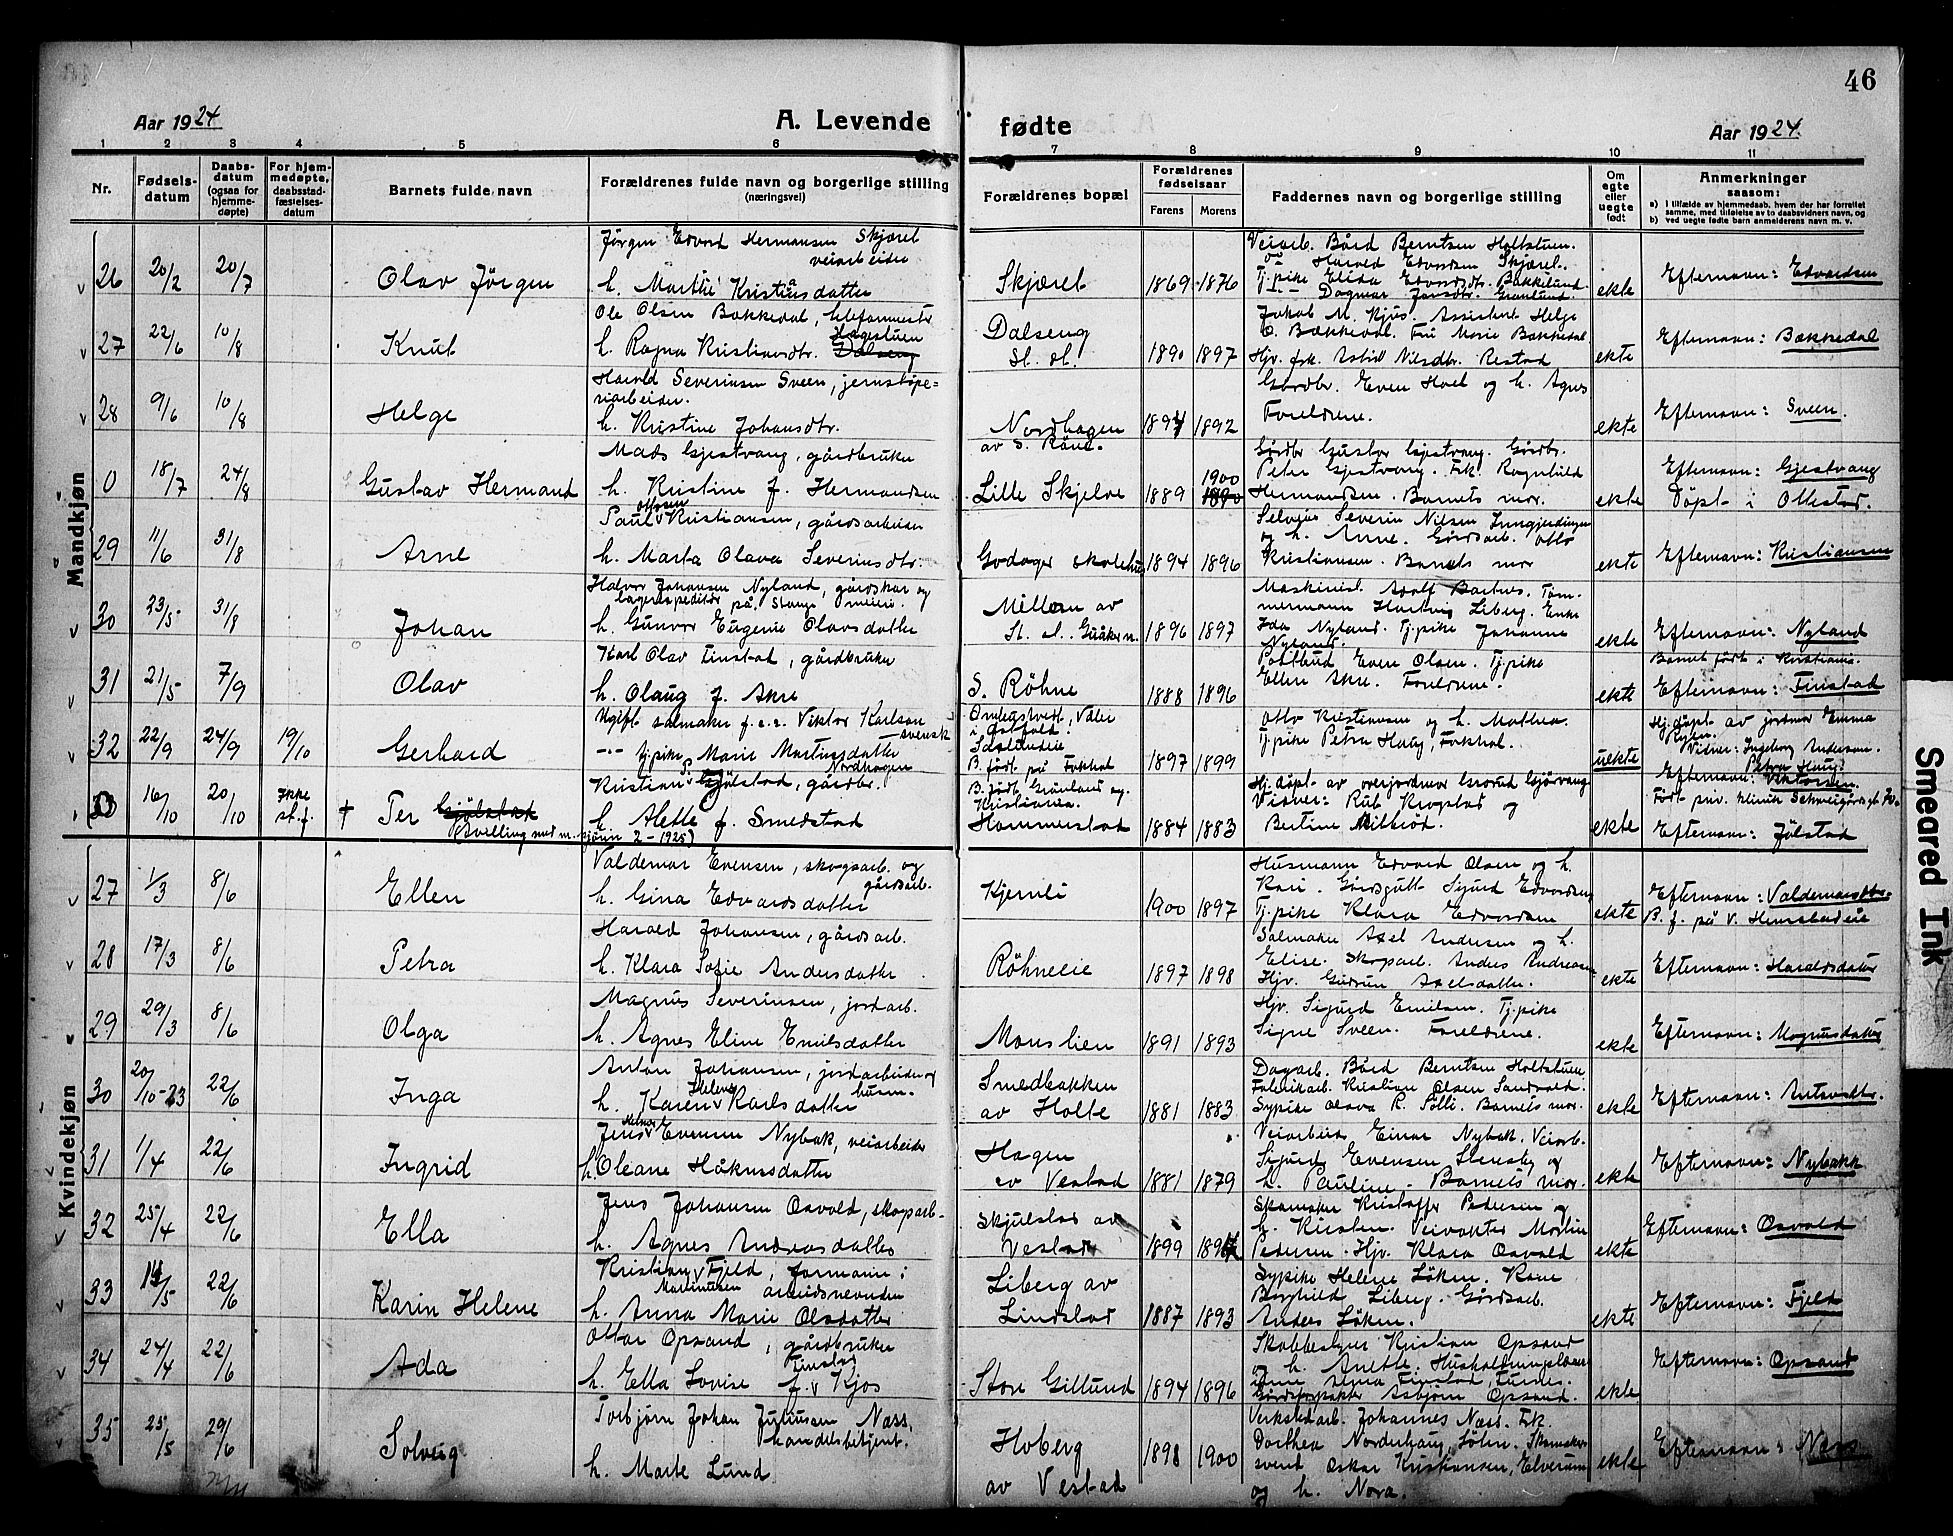 46
Aar 1924
A. Levende fødte
Aar 1924.
1 2 3 4 5 6 7 8 9 10 11
Nr.
Fødsels-
datum
Daabs-
datum
(ogsaa for
hjemme-
døpte)
For hjem-
medøpte,
daabsstad-
fæstelses-
datum
Barnets fulde navn
Forældrenes fulde navn og borgerlige stilling
(næringsvei)
Forældrenes bopæl
Forældrenes
fødselsaar
Farens Morens
Faddernes navn og borgerlige stilling
Om
egte
eller
uegte
født
Anmerkninger
saasom:
a) I tilfælde av hjemmedaab, hvem der har forrettet
samme, med tilføielse av to daabsvidners navn, og
b) ved uegte fødte barn anmelderens navn m. v.
Mandkjøn
26 20/2 20/7 Olav Jörgen
Jörgen Edvard Hermansen Skjæret
veiarbeider
h. Marthe Kristiansdatter
Skjæret 1869 1876
Veiarb. Bård Berntsen Holtstuen.
Harald Edvardsen Skjæret.
Tj.pike Elida Edvardsdtr. Bakkelund.
Dagmar Jensdtr. Grønlund.
ekte Efternavn: Edvardsen
27 22/6 10/8 Knut
Ole Olsen Bækkedal, telefonmester
h. Ragna Kristiansdtr. Hagestuen
Dalseng
St. st. 1890 1897
Jakob M. Kjus. Assistent Helge
O. Bækkedal. Fru Marie Bækkedal
Hjv. frk. Astrid Nilsdtr. Restad
ekte Efternavn: Bækkedal
28 9/6 10/8 Helge
Harald Severinsen Sveen, jernstøpe-
riarbeider.
h. Kristine Johansdtr.
Nordhagen
av S. Röne. 1894 1892
Gårdbr. Even Hoel og h. Agnes
Foreldrene.
ekte Efternavn: Sveen.
0 18/7 24/8 Gustav Hermand
Mads Gjestvang, gårdbruker
h. Kristine f. Hermandsen
Lille Skjelve 1889 1900
Gårdbr Gustav Gjestvang. Gårdbr.
Peter Gjestvang. Frk. Ragnhild
Hermandsen. Barnets mor.
ekte Efternavn: Gjestvang
Döpt i Ottestad.
29 11/6 31/8 Arne
Paul Ottosen Kristiansen, gårdsarbeider
h. Marta Olava Severinsdtr.
Godager skolehus 1894 1896
Selveier Severin Nilsen Inngjerdingen
og h. Anne. Gårdsarb. Otto
Kristiansen. Barnets mor
ekte Efternavn: Kristiansen
30 23/5 31/8 Johan
Halvor Johansen Nyland, gårdskar og
lagerexpeditör på Stange meieri.
h. Gunvor Eugenie Olavsdatter
Millom av
St. st. Guåker n. 1896 1897
Maskinist Adolf Backus. Töm-
mermann Hartvig Liberg. Enke
Ida Nyland. Tj.pike Johanne
Nyland.
ekte Efternavn: Nyland
31 21/5 7/9 Olav
Karl Olav Finstad, gårdbruker
h. Olaug f. Akre
S. Röhne 1888 1896
Postbud Even Olsen. Tj.pike
Ellen Akre. Foreldrene.
ekte Barnet født i Kristiania.
Efternavn: Finstad
32 22/9 24/9 19/10 Gerhard
Ugift salmaker f.e.r. Viktor Karlson
svensk
-"- tj.pike Marie Martinsdatter
Nordhagen
B. født på Fokhol 1897 1899
Otto Kristiansen og h. Mathea.
Tj.pike Petra Haug, Fokhol.
uekte Hj.döpt av jordmor Emma
Vidner: Ingeborg Andersen.
Petra Haug.
Efternavn: Viktorsen.
33 16/10 20/10 Ikke
st.f. † Per
(tvilling med m.kjönn 2 - 1925)
Kristian Gjölstad, gårdbr.
h. Alette f. Smedstad
Kristiania.
Hommerstad 1884 1883
Hj.döpt av overjordmor Gjörvang
Vidner: Rut Krogstad og
Bertine Milteröd.
ekte Efternavn: Jölstad
Kvindekjøn
27 1/3 8/6 Ellen
Valdemar Evensen, skogsarb. og
gårdsarb.
h. Gina Edvardsdatter
Kjernli 1900 1897
Husmann Edvard Olsen og h.
Kari. Gårdsgutt Sigurd Edvardsen
Tj.pike Klara Edvardsen
ekte Efternavn: Valdemarsdtr.
B. f. på V. Hemstadeie
28 17/3 8/6 Petra
Harald Johansen, gårdsarb.
h. Klara Sofie Andersdatter
Röhneeie 1897 1898
Salmaker Axel Andersen og h.
Elise. Skogarb. Anders Andreasen
Hjv. Gudrun Axelsdatter.
ekte Efternavn: Haraldsdatter
29 29/3 8/6 Olga
Magnus Severinsen, jordarb.
h. Agnes Eline Emilsdatter
Monslien 1891 1893
Hjv. Sigurd Emilsen. Tj.pike
Signe Sveen. Foreldrene.
ekte Efternavn: Magnusdatter
30 20/10-23 22/6 Inga
Anton Johansen, jordarbeider og
husm.
h. Karen Helene Karlsdatter
Smedbakken
av Holte 1881 1883
Dagarb. Bård Berntsen Holtstuen
Fabrikarb. Kristian Olsen Sandvold.
Sypike Olava K. Solli. Barnets mor.
ekte Efternavn: Antonsdtr.
31 1/4 22/6 Ingrid
Jens Evensen Nybak, veiarbeider
h. Oleane Håkensdatter
Hagen
av Vestad 1881 1879
Veiarbeid. Einar Nybak. Veiarb.
Sigurd Evensen Stensby og
h. Pauline. Barnets mor.
ekte Efternavn: Nybakk
32 25/4 22/6 Ella
Jens Johansen Osvold, skogarb-
h. Agnes Andreasdatter
Skjulstad av
Vestad 1899
Skomaker Kristoffer Pedersen og
h. Kirsten. Veivokter Martin
Pedersen. Hjv. Klara Osvold
ekte Efternavn: Osvold
33 14/5 22/6 Karin Helene
Kristian Martinusen Fjeld, formann i
arbeidsnevnden
h. Anna Marie Olsdatter
Liberg av
Lindstad 1887 1893
Sypike Helene Löken. Kone
Borghild Liberg. Gårdsarb.
Anders Löken.
ekte Efternavn: Fjeld
34 24/4 22/6 Ada
Ottar Opsand, gårdbruker
h. Ella Lovise Finstad f. Kjos
Store Gillund 1894 1896
Skobbestyrer Kristian Opsand
og h. Anette. Husholdningslærer-
inne Anna Finstad, Furnes.
Gårdsforpakter Asbjörn Opsand.
ekte Efternavn: Opsand
35 25/5 29/6 Solveig
Torbjörn Johan Juliussen Næss
handelsbetjent.
h. Marte Lund
Hoberg
av Vestad 1898 1900
Verkstedarb. Johannes Næss. Frk.
Dorthea Norderhaug, Löten. Skomaker-
svend Oskar Kristiansen, Elverum
og h. Nora.
ekte Efternavn: Næss
Smeared Ink